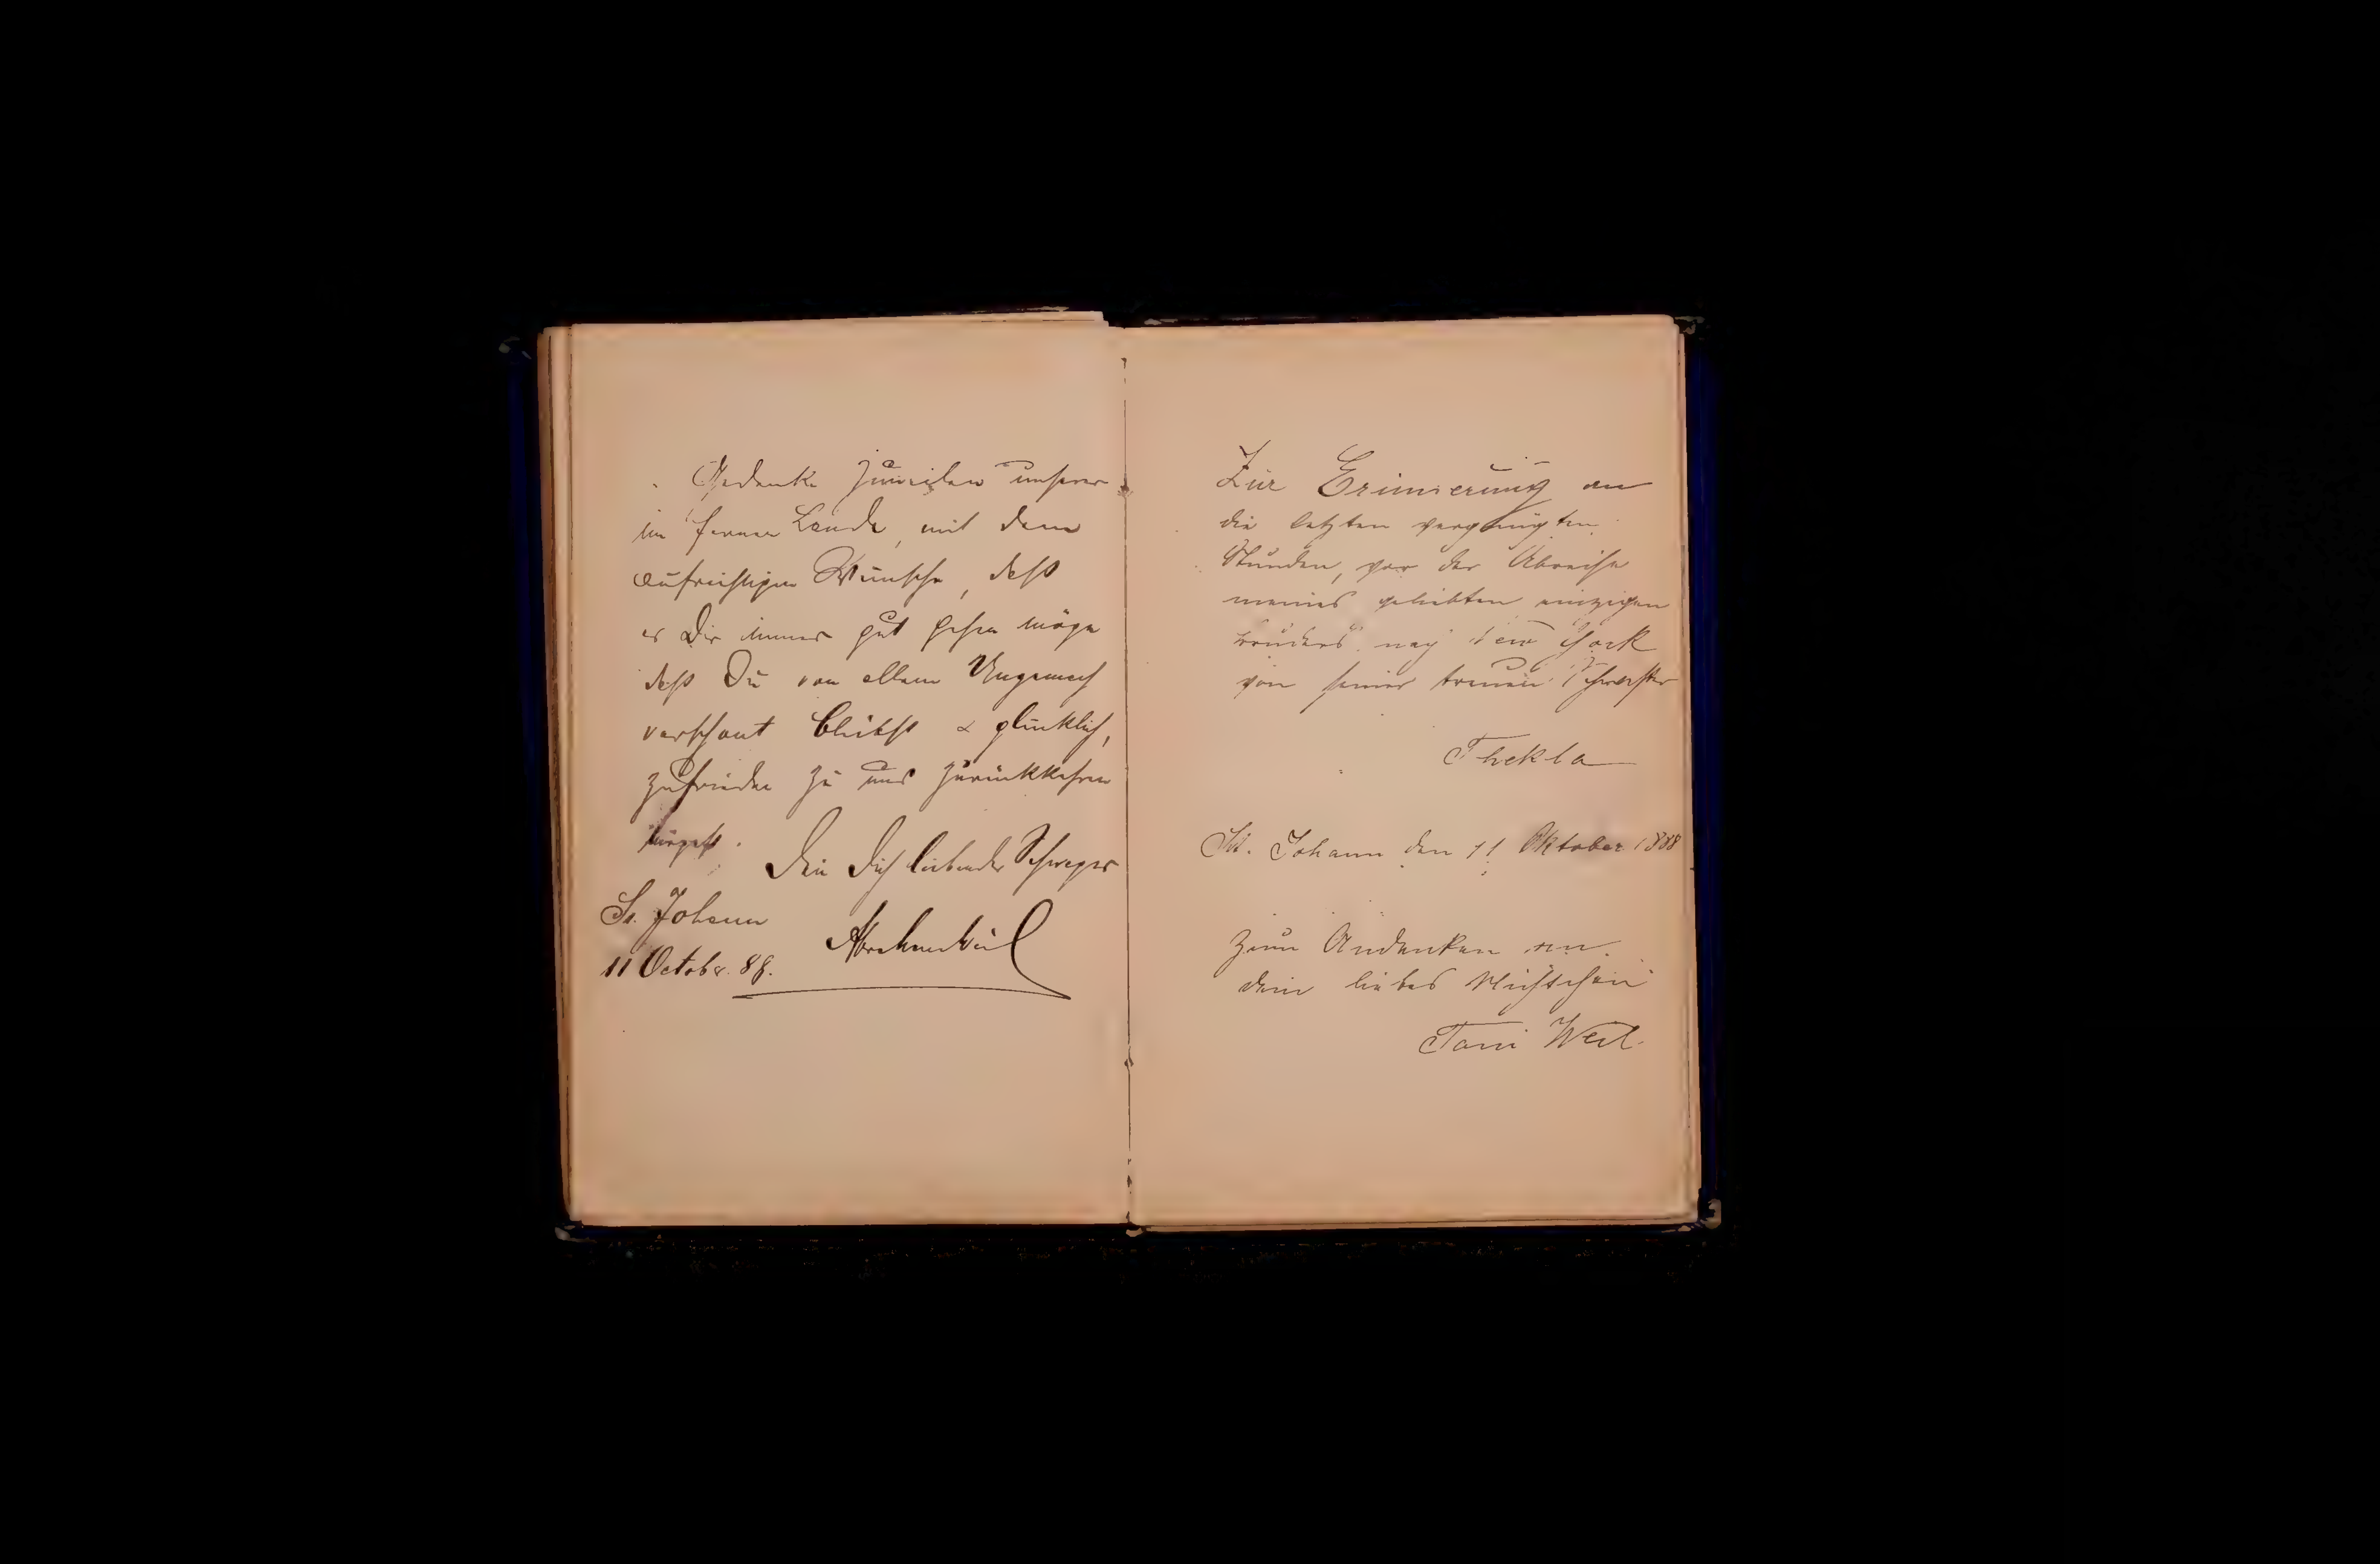 Gedenke zuweilen unserer
im fernen Lande, mit dem
aufrichtigen Wunsche, daß
es Dir immer gut gehen möge
daß Du von allem Ungemach
verschont bleibst & glücklich,
zufrieden zu uns zurückkehren
mögest.
Dein Dich liebender Schwager
St. Johann
Abraham Weil
11 October. 88.
Zur Erinnerung an
die letzten vergnügten
Stunden, vor der Abreise
meines geliebten einzigen
Bruders nach New York
von seiner treuen Schwester
Thekla
St. Johann den 11 Oktober 1888
Zum Andenken an
dein liebes Nichtchen
Toni Weil.